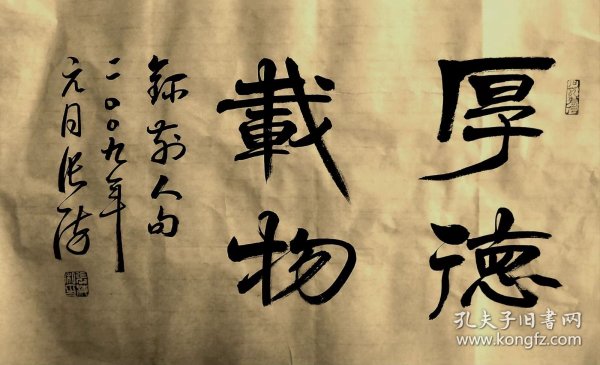 厚德
載物
錄前人句
二〇〇九年
元月張
孔夫子旧書网
www.kongfz.com